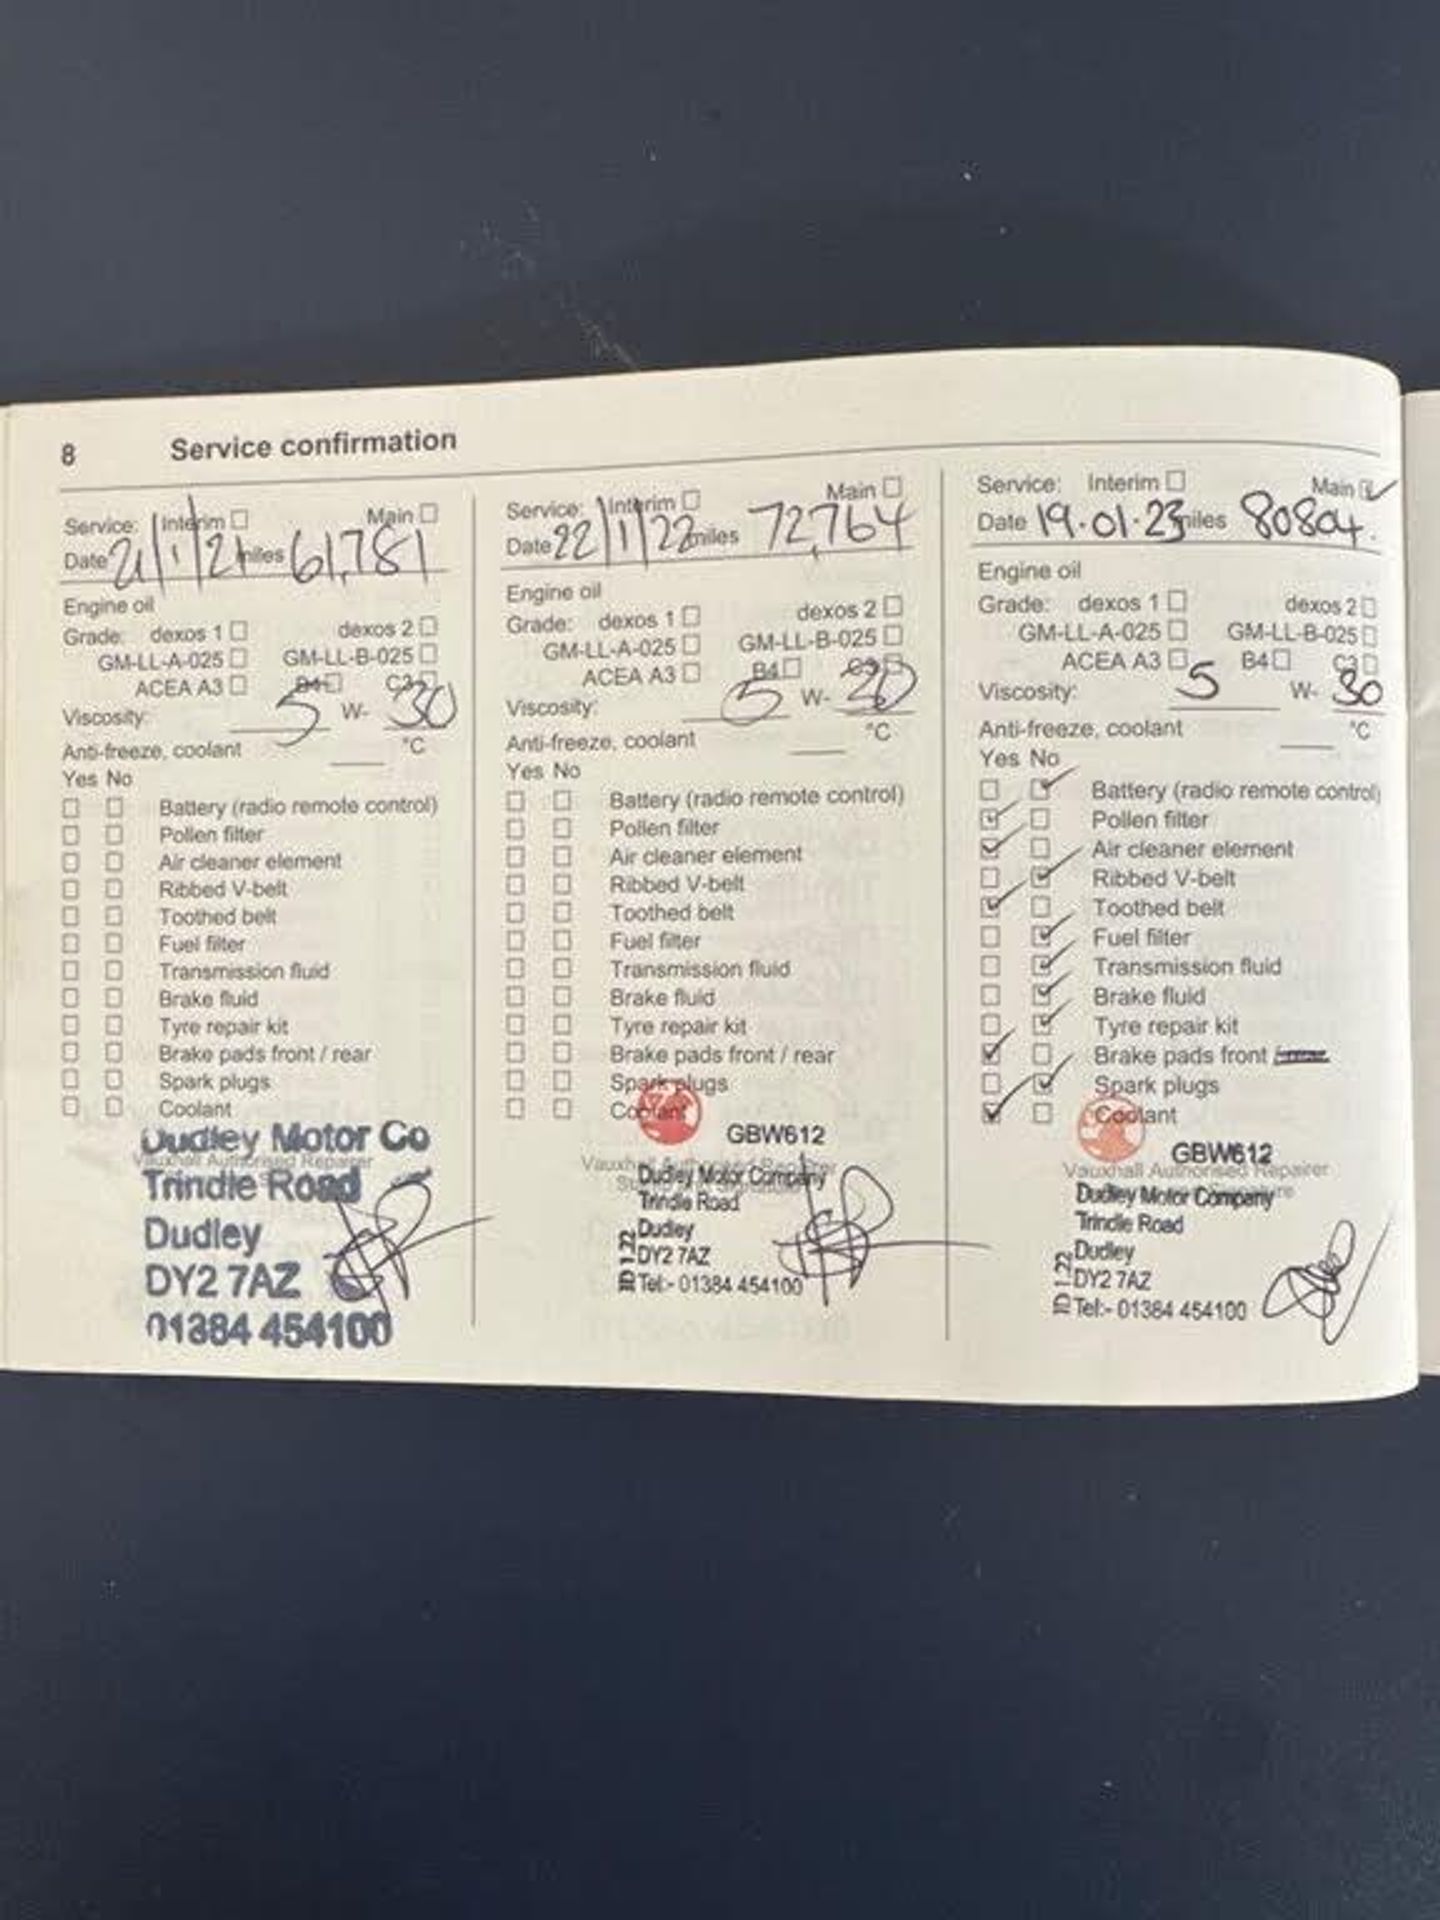 8 Service confirmation
Service: Interim ☐ Main ☐
Date 21/1/21 miles 61,781
Engine oil
Grade: dexos 1 ☐ dexos 2 ☐
GM-LL-A-025 ☐ GM-LL-B-025 ☐
ACEA A3 ☐ B4 ☐ C3 ☐
Viscosity: 5 W- 30
Anti-freeze, coolant ____ °C
Yes No
☐ ☐ Battery (radio remote control)
☐ ☐ Pollen filter
☐ ☐ Air cleaner element
☐ ☐ Ribbed V-belt
☐ ☐ Toothed belt
☐ ☐ Fuel filter
☐ ☐ Transmission fluid
☐ ☐ Brake fluid
☐ ☐ Tyre repair kit
☐ ☐ Brake pads front / rear
☐ ☐ Spark plugs
☐ ☐ Coolant
Dudley Motor Co
Vauxhall Authorised Repairer
Trindle Road
Dudley
DY2 7AZ
01384 454100
Service: Interim ☐ Main ☐
Date 22/1/22 miles 72,764
Engine oil
Grade: dexos 1 ☐ dexos 2 ☐
GM-LL-A-025 ☐ GM-LL-B-025 ☐
ACEA A3 ☐ B4 ☐ C3 ☐
Viscosity: 5 W- 20
Anti-freeze, coolant ____ °C
Yes No
☐ ☐ Battery (radio remote control)
☐ ☐ Pollen filter
☐ ☐ Air cleaner element
☐ ☐ Ribbed V-belt
☐ ☐ Toothed belt
☐ ☐ Fuel filter
☐ ☐ Transmission fluid
☐ ☐ Brake fluid
☐ ☐ Tyre repair kit
☐ ☐ Brake pads front / rear
☐ ☐ Spark plugs
☐ ☐ Coolant
GBW612
Vauxhall Authorised Repairer
Dudley Motor Company
Trindle Road
Dudley
DY2 7AZ
Tel:- 01384 454100
ID 1-22
Service: Interim ☐ Main ☑
Date 19.01.23 miles 80804.
Engine oil
Grade: dexos 1 ☐ dexos 2 ☐
GM-LL-A-025 ☐ GM-LL-B-025 ☐
ACEA A3 ☐ B4 ☐ C3 ☐
Viscosity: 5 W- 30
Anti-freeze, coolant ____ °C
Yes No
☐ ☑ Battery (radio remote control)
☑ ☐ Pollen filter
☑ ☐ Air cleaner element
☐ ☑ Ribbed V-belt
☑ ☐ Toothed belt
☐ ☑ Fuel filter
☐ ☑ Transmission fluid
☐ ☑ Brake fluid
☐ ☑ Tyre repair kit
☑ ☐ Brake pads front
☐ ☑ Spark plugs
☑ ☐ Coolant
GBW612
Vauxhall Authorised Repairer
Dudley Motor Company
Trindle Road
Dudley
DY2 7AZ
Tel:- 01384 454100
ID 1-22